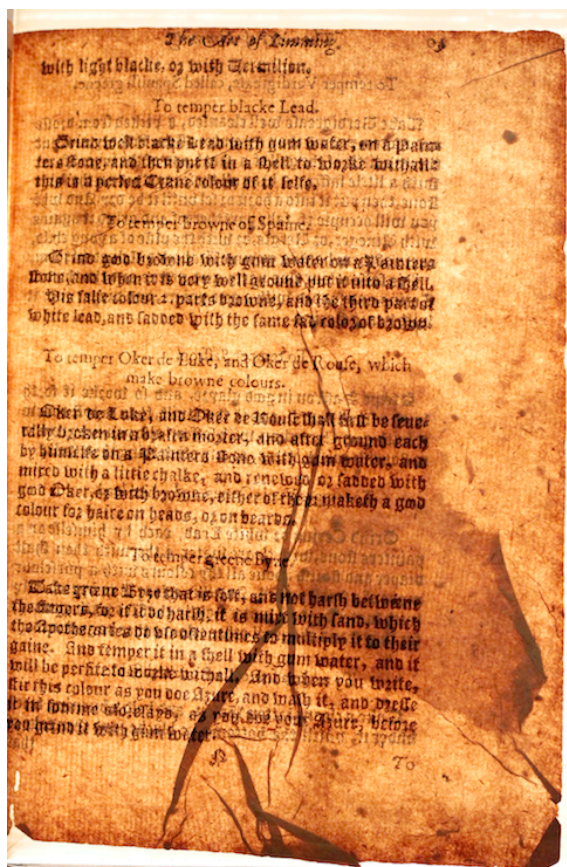 The Art of Limming.
with light blacke, or with Vermilion.
To temper blacke Lead.
Grind well blacke Lead with gum water, on a Pain-
ters stone, and then put it in a shell to worke withall:
this is a perfect Crane colour of it selfe.
To temper browne of Spaine.
Grind good browne with gum water on a Painters
stone, and when it is very well ground put it into a shell.
His false colour 2. parts browne, and the third part of
white lead, and sadded with the same sad color of brown.
To temper Oker de Luke, and Oker de Rouse, which
make browne colours.
Oker de Luke, and Oker de Rouse shall first be seue-
rally broken in a brasen morter, and after ground each
by himselfe on a Painters stone with gum water, and
mixed with a little chalke, and renewed or sadded with
good Oker, or with browne, either of them maketh a good
colour for haire on heads, or on beards.
To temper greene Byze.
Take greene Byze that is soft, and not harsh betweene
the fingers, for if it be harsh, it is mixt with sand, which
the Apothecaries do vse oftentimes to multiply it to their
gaine. And temper it in a shell with gum water, and it
will be perfite to worke withall. And when you write,
stir this colour as you doe Azure, and wash it, and dresse
it in somme aforesayd, as you doe your Azure, before
you grind it with gum water.
To